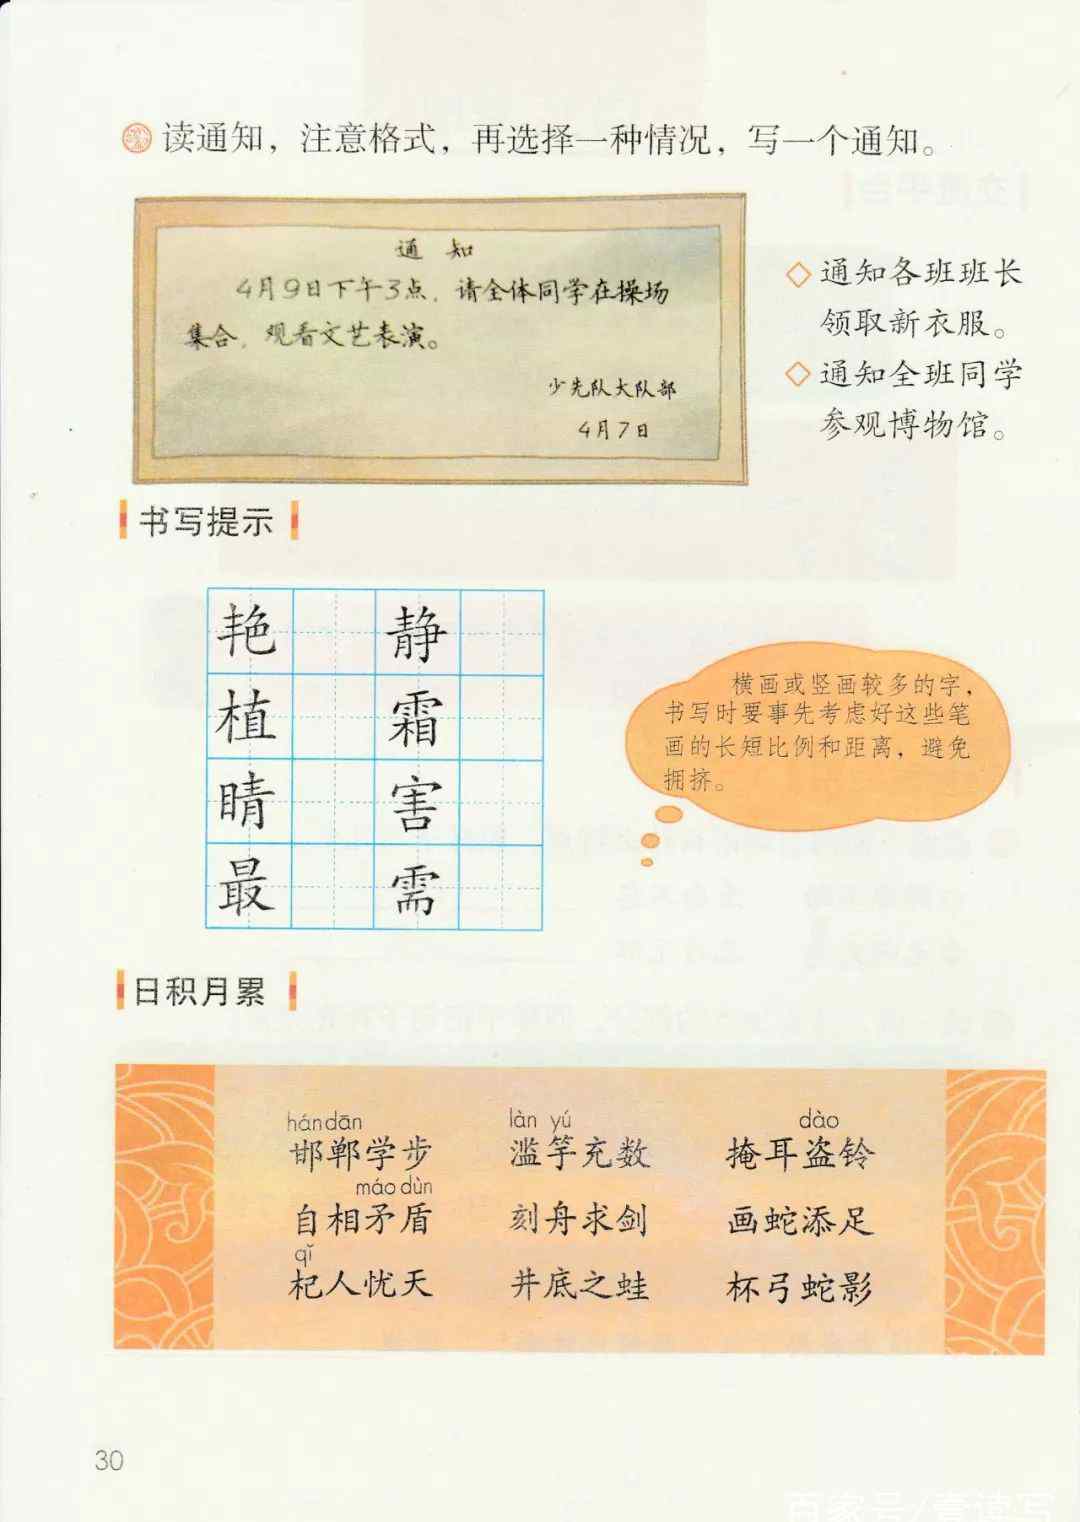 读通知，注意格式，再选择一种情况，写一个通知。
通 知
4月9日下午3点，请全体同学在操场
集合，观看文艺表演。
少先队大队部
4月7日
◇ 通知各班班长
领取新衣服。
◇ 通知全班同学
参观博物馆。
书写提示
艳 静
植 霜
晴 害
最 需
横画或竖画较多的字，
书写时要事先考虑好这些笔
画的长短比例和距离，避免
拥挤。
日积月累
hándān làn yú dào
邯郸学步 滥竽充数 掩耳盗铃
máo dùn
自相矛盾 刻舟求剑 画蛇添足
qǐ
杞人忧天 井底之蛙 杯弓蛇影
30
百家号/壹读写